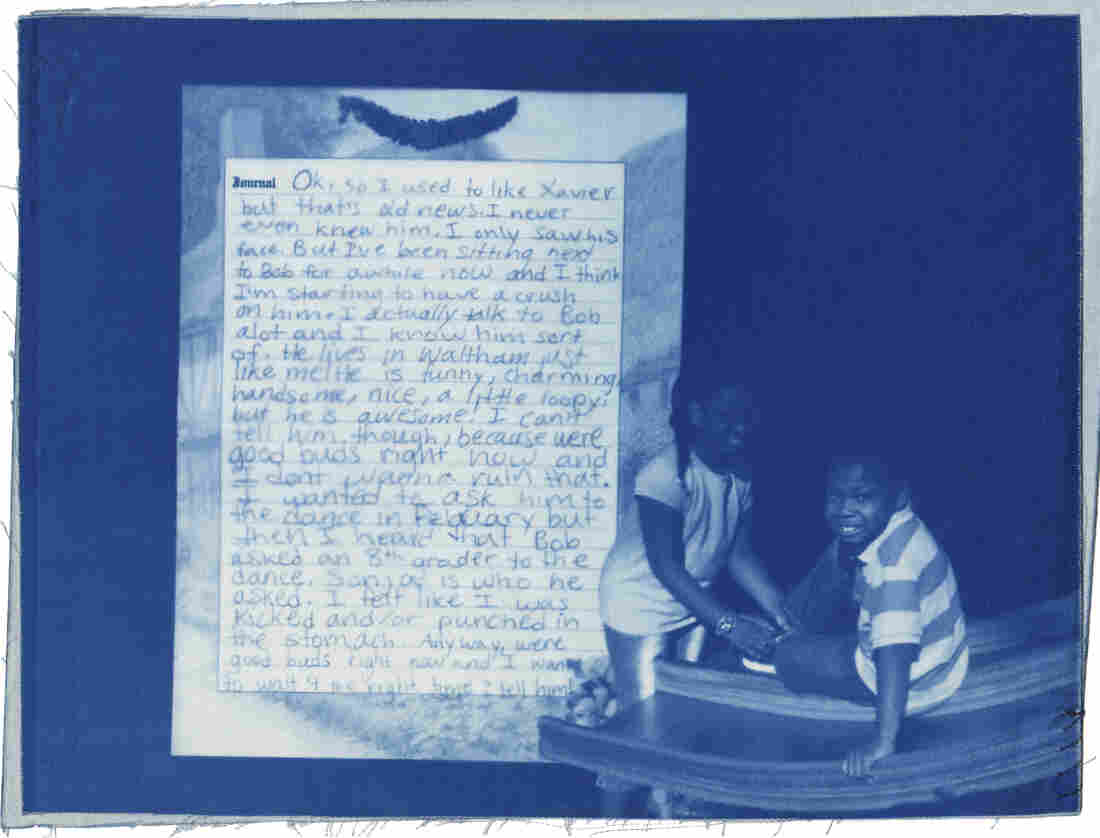 Journal Ok, so I used to like Xavier
but that's old news. I never
even knew him. I only saw his
face. But I've been sitting next
to Bob for awhile now and I think
I'm starting to have a crush
on him. I actually talk to Bob
alot and I know him sort
of. He lives in Waltham just
like me! He is funny, charming,
handsome, nice, a little loopy,
but he is awesome! I can't
tell him though, because were
good buds right now and
I dont wanna ruin that.
I wanted to ask him to
the dance in Febuary but
then I heard that Bob
asked an 8th grader to the
dance. is who he
asked. I felt like I was
kicked and/or punched in
the stomach. Anyway, were
good buds right now and I want
to wait 4 the right time I tell him!